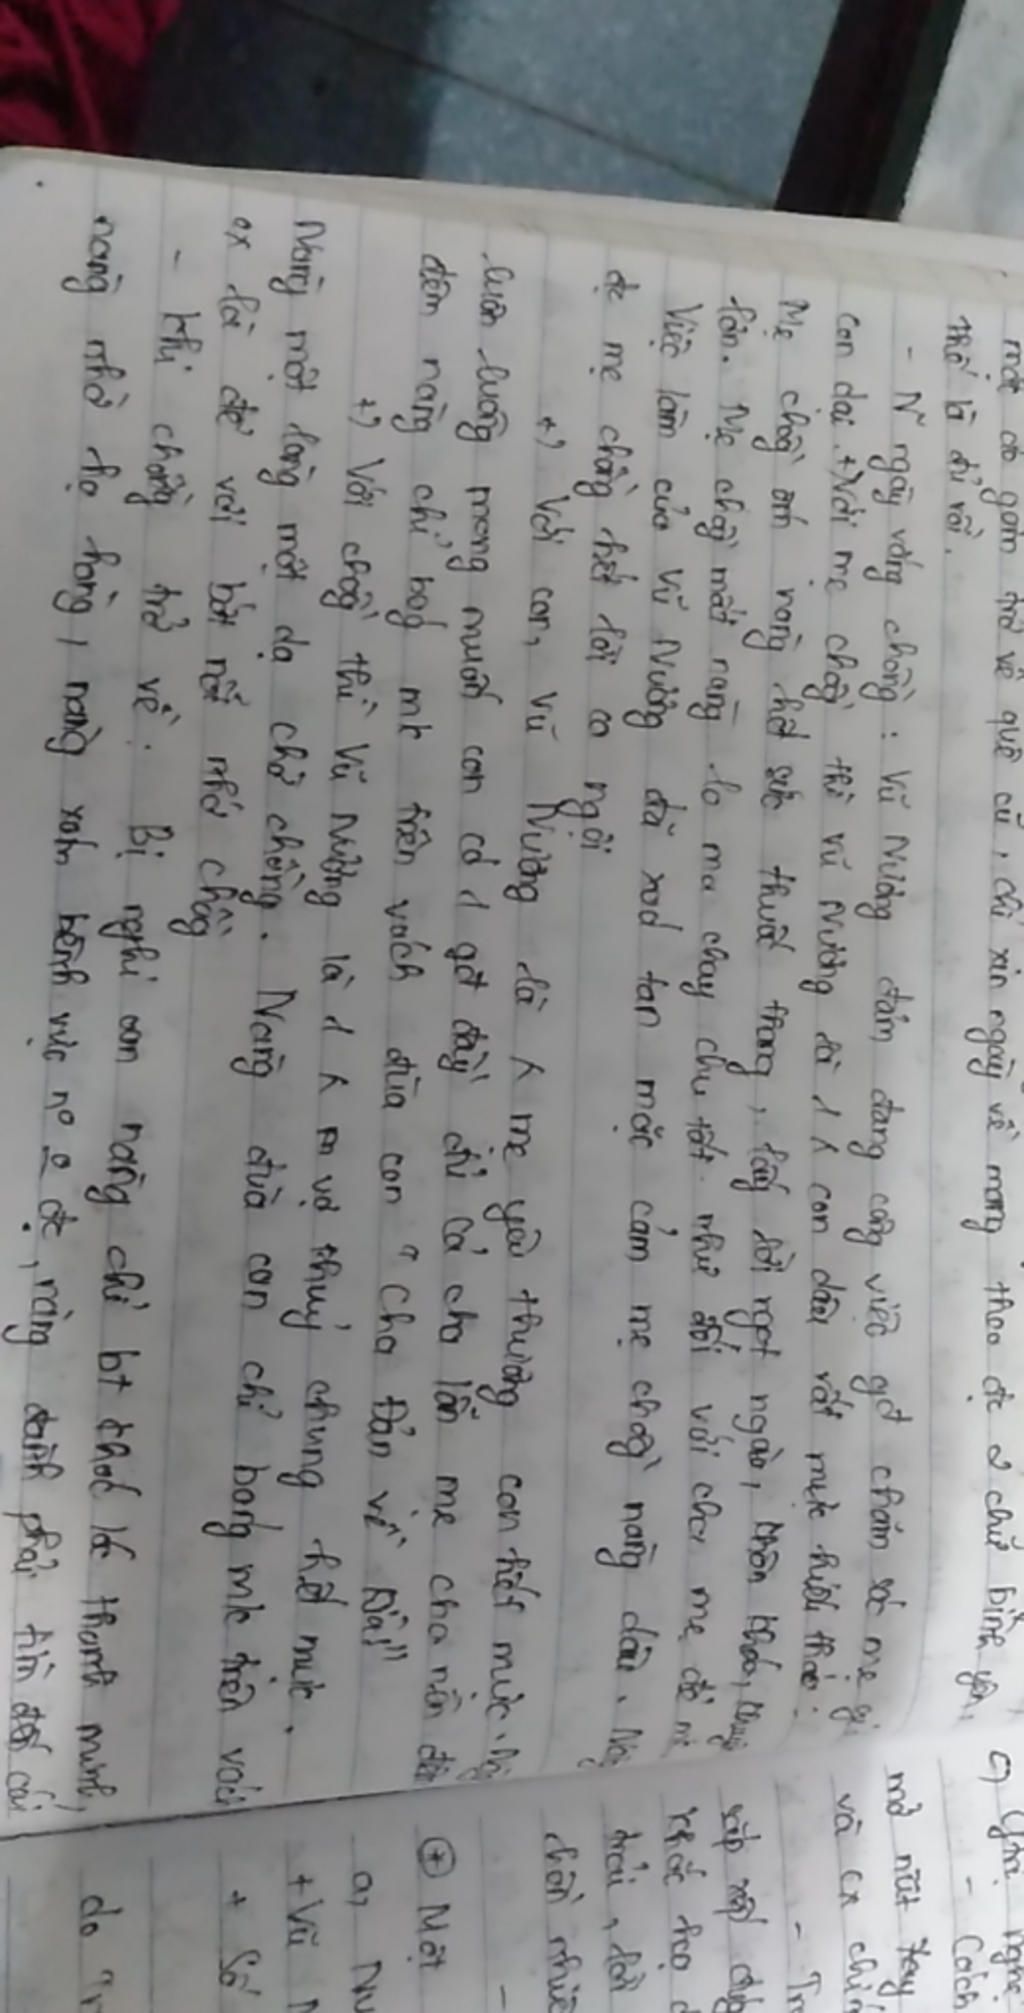 một áo gấm trở về quê cũ, chỉ xin ngày về mang theo đc 2 chữ bình yên,
thế là đủ rồi.
- N ngày vắng chồng: Vũ Nương đảm đang công việc gđ chăm sóc mẹ già
con dại. +, Với mẹ chồng thì Vũ Nương là 1 con dâu rất mực hiếu thảo:
Mẹ chồng ốm nàng hết sức thuốc thang, lấy lời ngọt ngào, khôn khéo, khuyên
lơn. Mẹ chồng mất nàng lo ma chay chu tất như đối với cha mẹ đẻ
Việc làm của Vũ Nương đã xoá tan mặc cảm mẹ chồng nàng dâu.
đc mẹ chồng hết lời ca ngợi
+, Với con, Vũ Nương là mẹ yêu thương con hết mực.
luôn luông mong muốn con có 1 gđ đầy đủ cả cha lẫn mẹ cho nên
đêm nàng chỉ bóng mk trên vách đùa con "Cha Đản về đấy"
+, Với chồng thì Vũ Nương là 1 vợ thuỷ chung hết mực.
Nàng một lòng một dạ chờ chồng. Nàng đùa con chỉ bóng mk trên vách
ex là để vơi bớt nỗi nhớ chồng
- Khi chồng trở về: Bị nghi oan nàng chỉ bt khóc lóc thanh minh,
nàng nhờ họ hàng, nàng xóm bênh vực no o đc, nàng đành phải tìm đến cái
c) 
- Cách
mở nút
và
- Tr
sắp xếp
khắc hoạ
⊕ Một
a, Nư
+ Vũ N
+ Số
do Tr